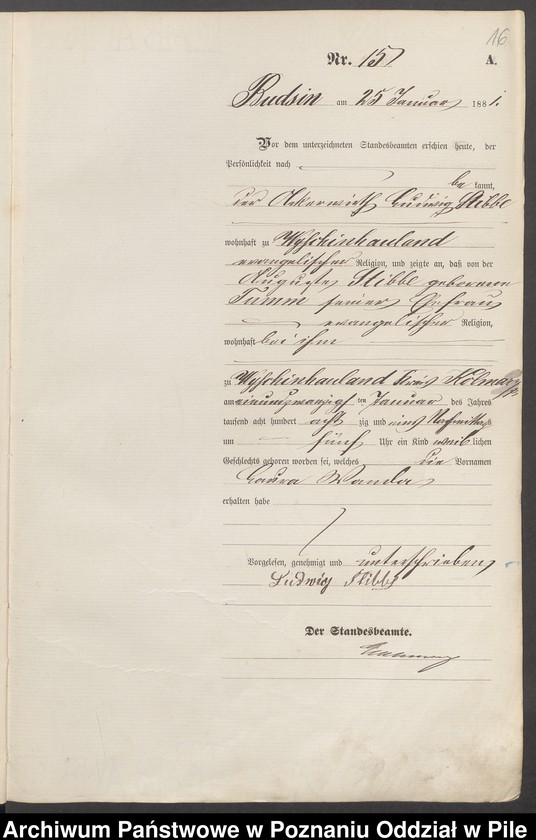 16
Nr. 15
A.
Budsin am 25 Januar 1881.
Vor dem unterzeichneten Standesbeamten erschien heute, der
Persönlichkeit nach
be kannt,
der Ackerwirth Ludwig Stibbe
wohnhaft zu Wyschinhauland
evangelischer Religion, und zeigte an, daß von der
Auguste Stibbe geborenen
Timm seiner Ehefrau
evangelischer Religion,
wohnhaft bei ihm
zu Wyschinhauland Kreis Kolmar
am einundzwanzigsten Januar des Jahres
tausend acht hundert acht zig und eins Nachmittags
um fünf Uhr ein Kind weib lichen
Geschlechts geboren worden sei, welches die Vornamen
Laura Wanda
erhalten habe
Vorgelesen, genehmigt und unterschrieben
Ludwig Stibbe
Der Standesbeamte.
Archiwum Państwowe w Poznaniu Oddział w Pile